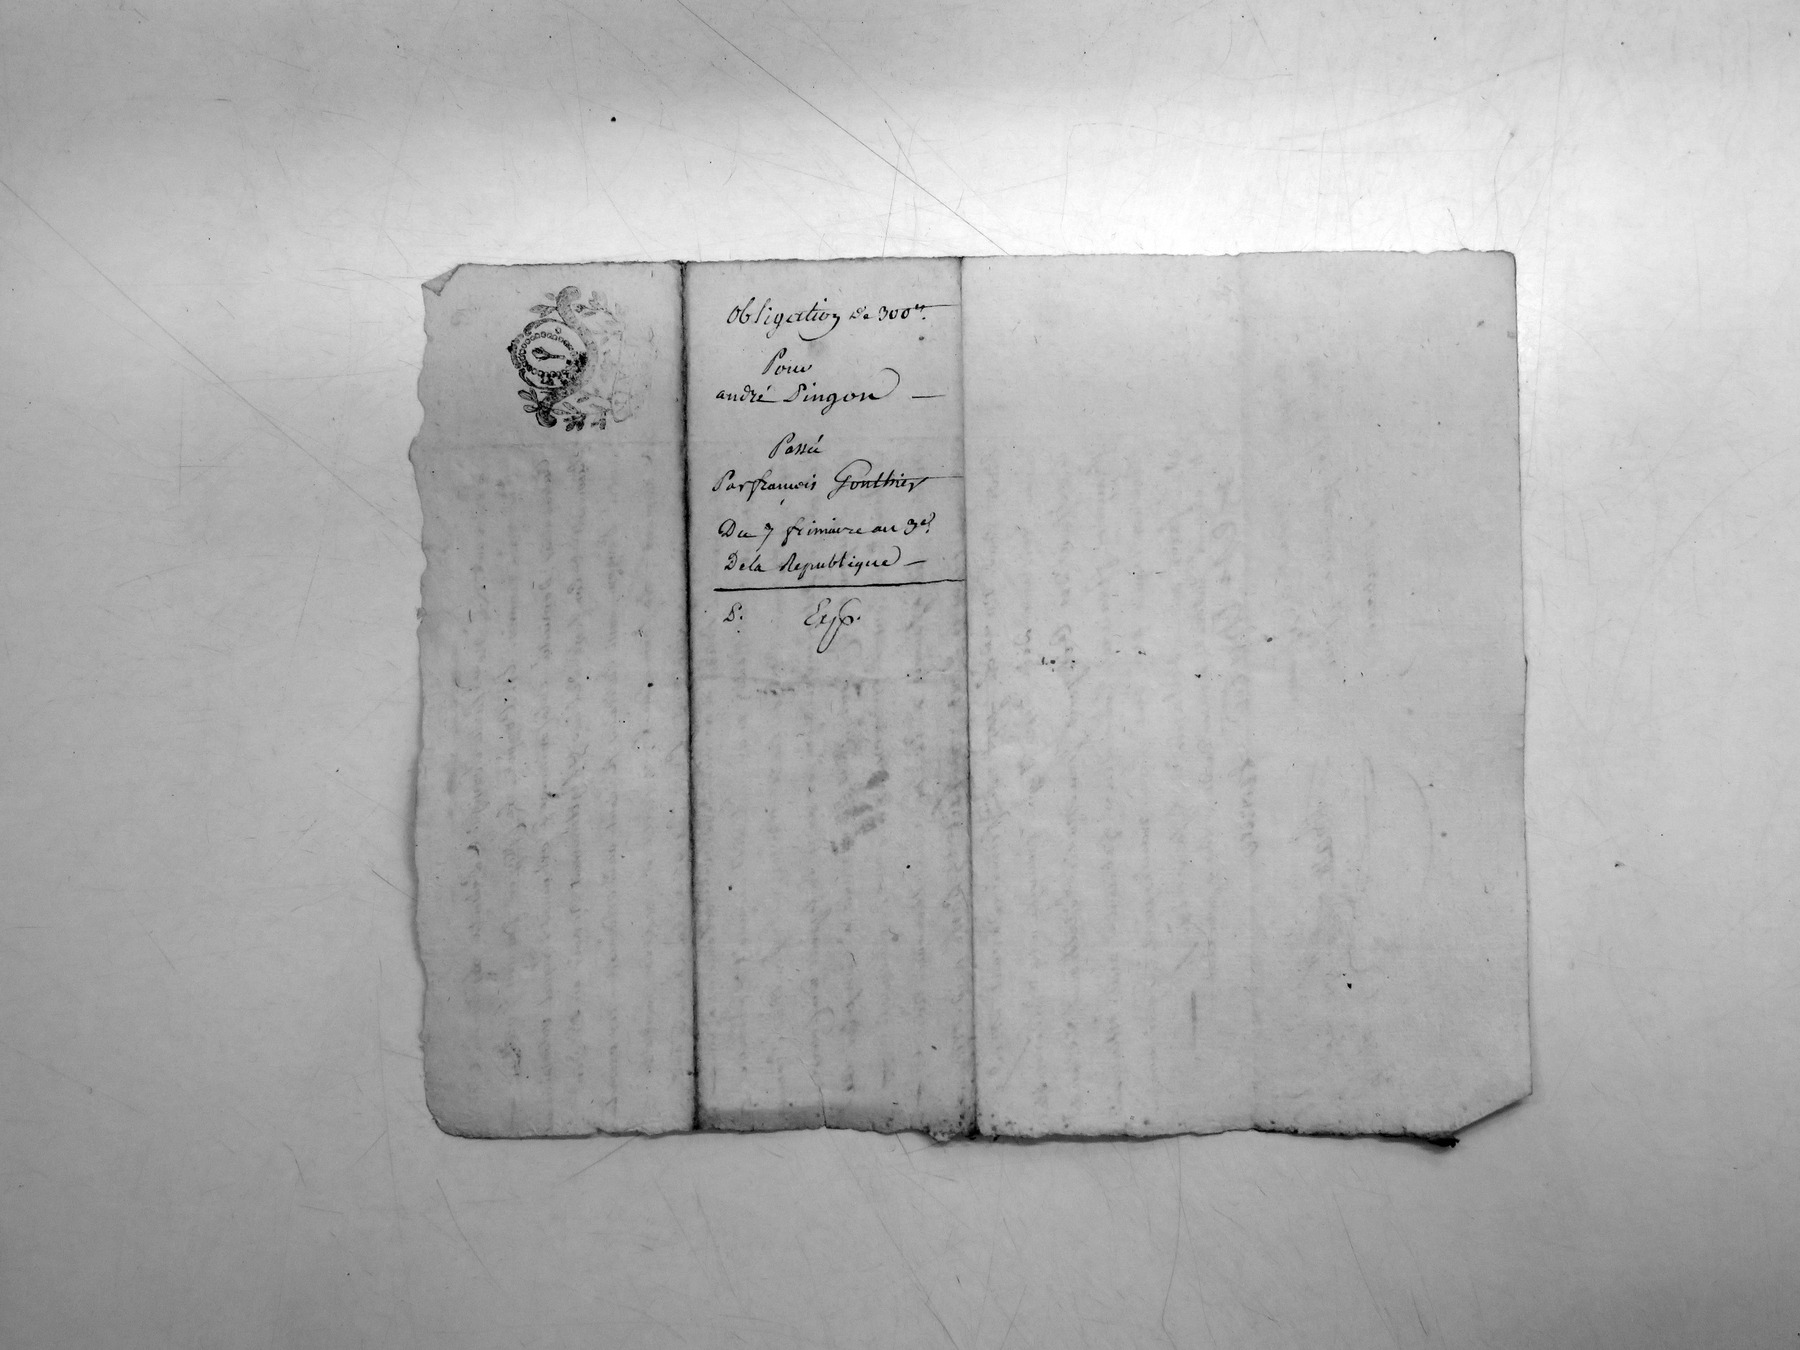 Obligation de 300tt.
Pour
andré Pingon
Passée
Par françois Gonthier
Du 7 frimaire an 3e.
De la Republique
P: Exp.